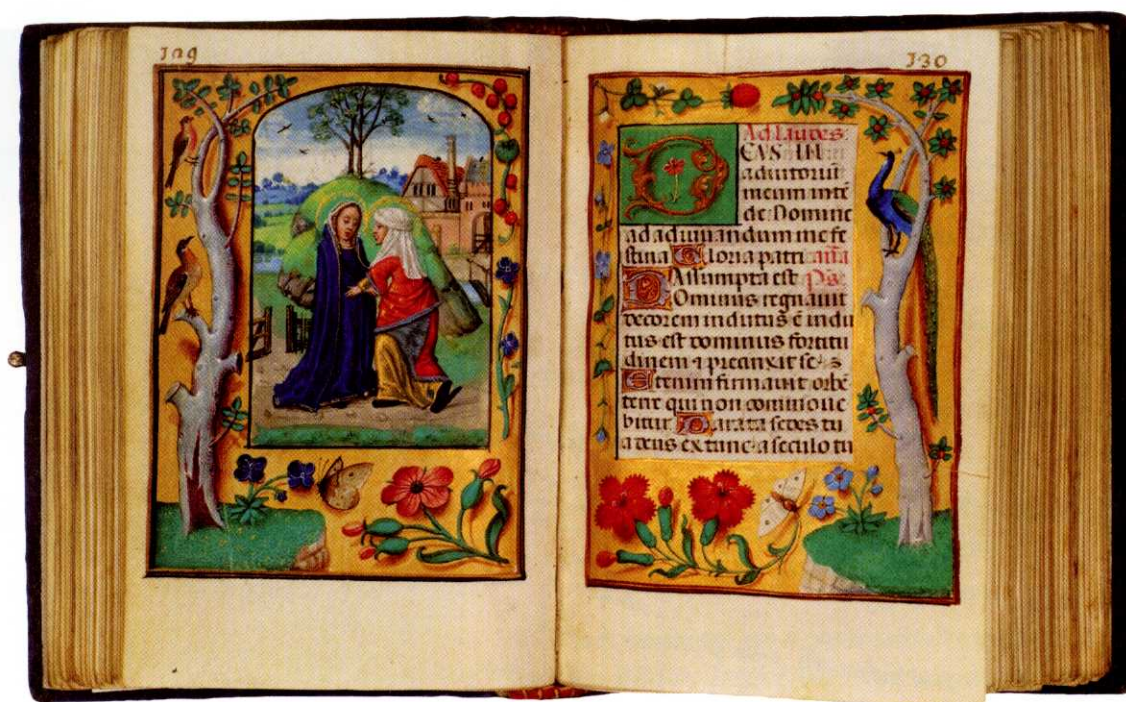 130
Ad Laudes.
DEVS IN
adiutoriū
meum intē
de: Domine
ad adiuuandum me fe
stina Gloria patri aña
Assumpta est Ps.
Dominus regnauit
decorem indutus ē indu
tus est dominus fortitu
dinem ⁊ precinxit se
Etenim firmauit orbē
terre qui non commoue
bitur Parata sedes tu
a deus ex tunc a seculo tu